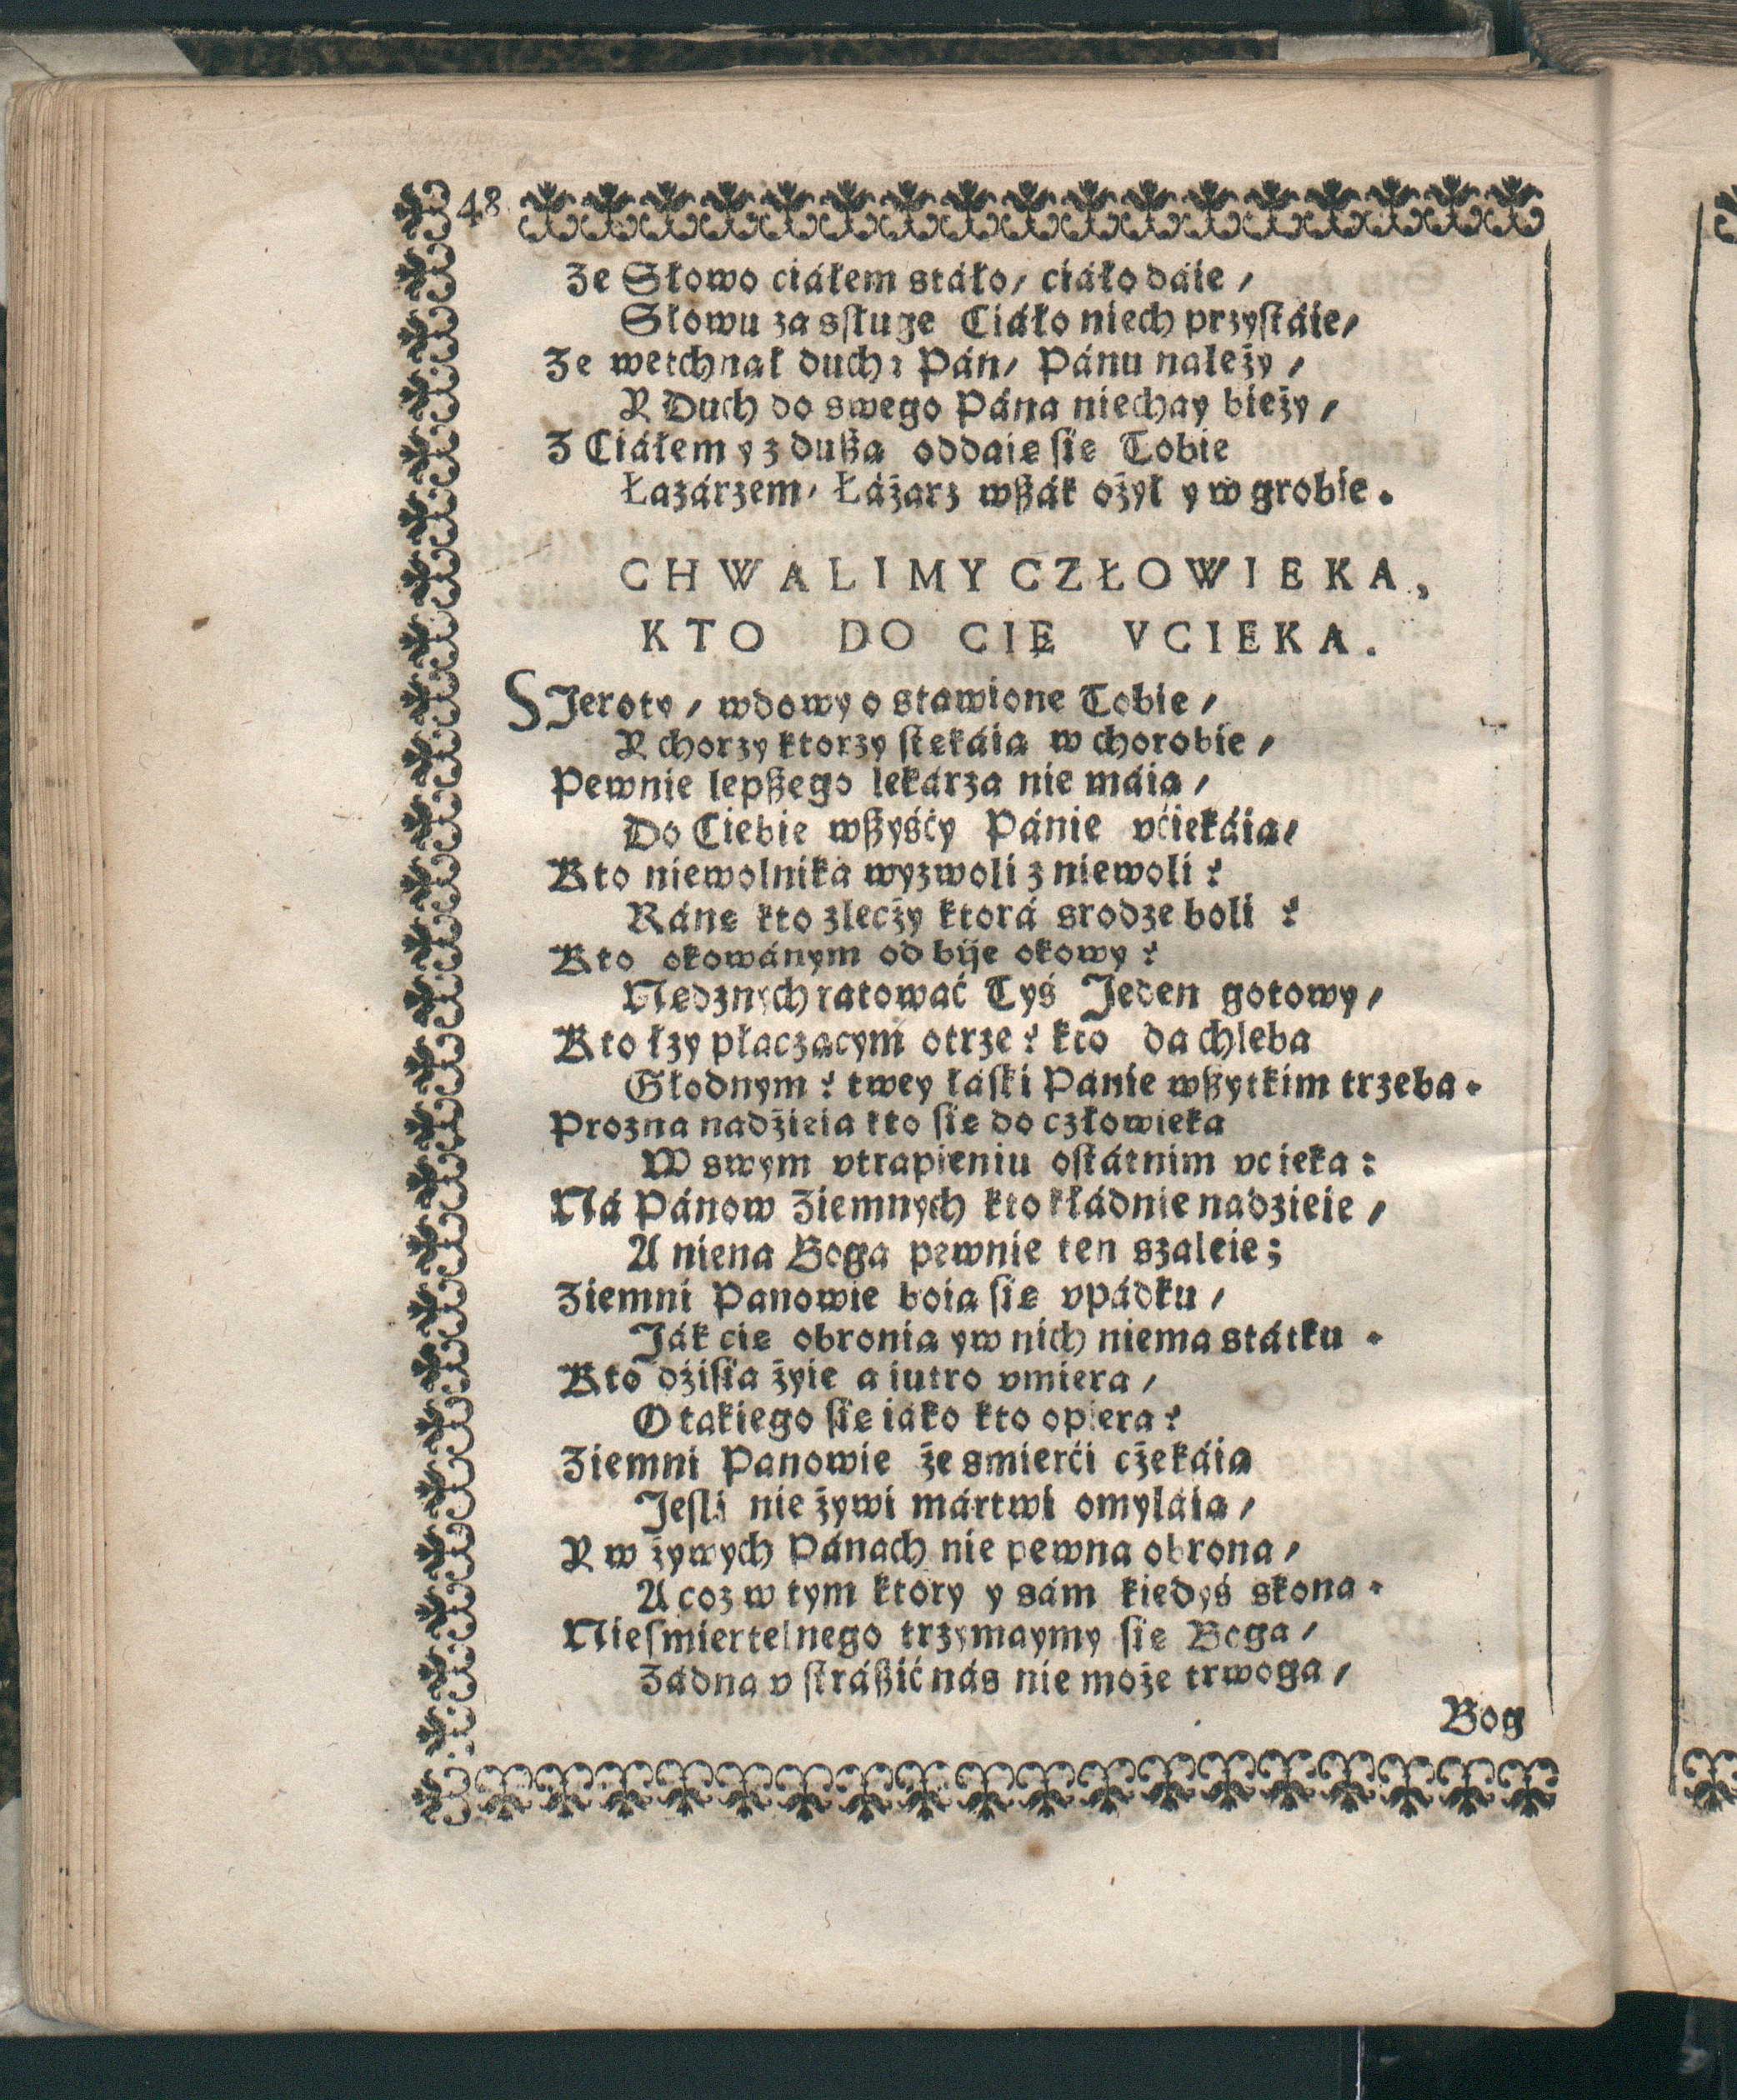 48
Ze Słowo ciáłem stáło, ciáło dáie,
Słowu za sſługę Ciáło niech przyſtáie,
Ze wetchnął duchá Pán, Pánu należy,
Y Duch do swego Pána niechay bieży,
Z Ciáłem y z dußą oddaię ſię Tobie
Łazárzem, Łáżarz wßák ożył y w grobie.
CHWALIMY CZŁOWIEKA,
KTO DO CIĘ VCIEKA.
SJeroty, wdowy o stawione Tobie,
Y chorzy ktorzy ſtękáią w chorobie,
Pewnie lepßego lekárza nie máią,
Do Ciebie wßyśćy Pánie vćiekáią,
Kto niewolniká wyzwoli z niewoli?
Ránę kto zleczy ktorá srodze boli?
Kto okowánym od bije okowy?
Nędznych ratować Tyś Jeden gotowy,
Kto łzy płaczącym otrze? kto da chleba
Głodnym? twey łáſki Pánie wßytkim trzeba.
Prozna nadżieia kto ſię do człowieka
W swym vtrapieniu oſtátnim vcieka:
Ná Pánow Ziemnych kto kłádnie nadzieie,
A niena Boga pewnie ten szaleie;
Ziemni Panowie boią ſię vpádku,
Ják cię obronią yw nich niema státku.
Kto dżiſia żyie a iutro vmiera,
O takiego ſię iáko kto opiera?
Ziemni Panowie że smierći czekáią
Jeſli nie żywi mártwi omyláią,
Y w żywych Pánach nie pewna obrona,
A coż w tym ktory y sám kiedyś skona.
Nieſmiertelnego trzymaymy ſię Boga,
Zádna v ſtráßić nás nie może trwoga,
Bog